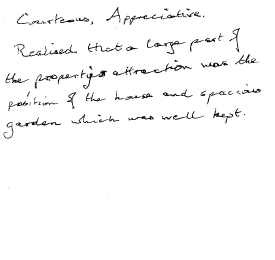 Courteous, Appreciative.
Realised that a large part of
the property's attraction was the
position of the house and spacious
garden which was well kept.